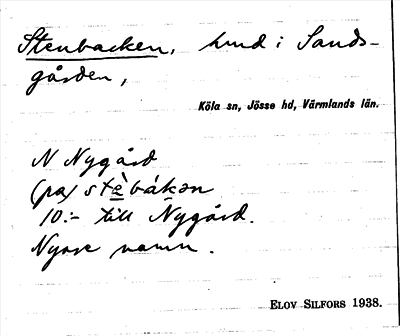 Stenbacken, hmd i Sands-
gården,
Köla sn, Jösse hd, Värmlands län.
N Nygård
(pa) stèbákən
10:- till Nygård.
Nyare namn.
ELOV SILFORS 1938.